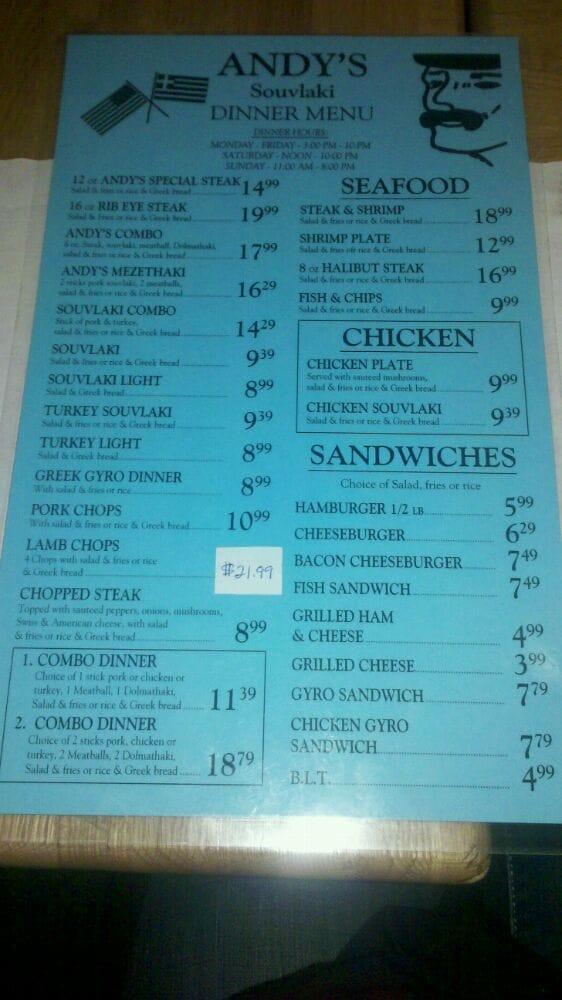 ANDY'S
Souvlaki
DINNER MENU
DINNER HOURS:
MONDAY - FRIDAY - 3:00 PM - 10:PM
SATURDAY - NOON - 10:00 PM
SUNDAY - 11:00 AM - 8:00 PM
12 oz ANDY'S SPECIAL STEAK 14.99
Salad & fries or rice & Greek bread
16 oz RIB EYE STEAK
Salad & fries or rice & Greek bread 19.99
ANDY'S COMBO
6 oz. Steak, souvlaki, meatball, Dolmathaki,
salad & fries or rice & Greek bread 17.99
ANDY'S MEZETHAKI
2 sticks pork souvlaki, 2 meatballs,
salad & fries or rice & Greek bread 16.29
SOUVLAKI COMBO
Stick of pork & turkey,
salad & fries or rice & Greek bread 14.29
SOUVLAKI
Salad & fries or rice & Greek bread 9.39
SOUVLAKI LIGHT
Salad & Greek bread 8.99
TURKEY SOUVLAKI
Salad & fries or rice & Greek bread 9.39
TURKEY LIGHT
Salad & Greek bread 8.99
GREEK GYRO DINNER
With salad & fries or rice 8.99
PORK CHOPS
With salad & fries or rice & Greek bread 10.99
LAMB CHOPS
4 Chops with salad & fries or rice
& Greek bread $21.99
CHOPPED STEAK
Topped with sauteed peppers, onions, mushrooms,
Swiss & American cheese, with salad
& fries or rice & Greek bread 8.99
1. COMBO DINNER
Choice of 1 stick pork or chicken or
turkey, 1 Meatball, 1 Dolmathaki,
Salad & fries or rice & Greek bread 11.39
2. COMBO DINNER
Choice of 2 sticks pork, chicken or
turkey, 2 Meatballs, 2 Dolmathaki,
Salad & fries or rice & Greek bread 18.79
SEAFOOD
STEAK & SHRIMP
Salad & fries or rice & Greek bread 18.99
SHRIMP PLATE
Salad & fries ofr rice & Greek bread 12.99
8 oz HALIBUT STEAK
Salad & fries or rice & Greek bread 16.99
FISH & CHIPS
Salad & fries or rice & Greek bread 9.99
CHICKEN
CHICKEN PLATE
Served with sauteed mushrooms,
salad & fries or rice & Greek bread 9.99
CHICKEN SOUVLAKI
Salad & fries or rice & Greek bread 9.39
SANDWICHES
Choice of Salad, fries or rice
HAMBURGER 1/2 LB 5.99
CHEESEBURGER 6.29
BACON CHEESEBURGER 7.49
FISH SANDWICH 7.49
GRILLED HAM
& CHEESE 4.99
GRILLED CHEESE 3.99
GYRO SANDWICH 7.79
CHICKEN GYRO
SANDWICH 7.79
B.L.T. 4.99